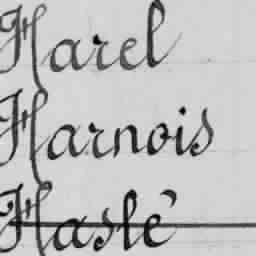 Harel
Harnois
Haslé